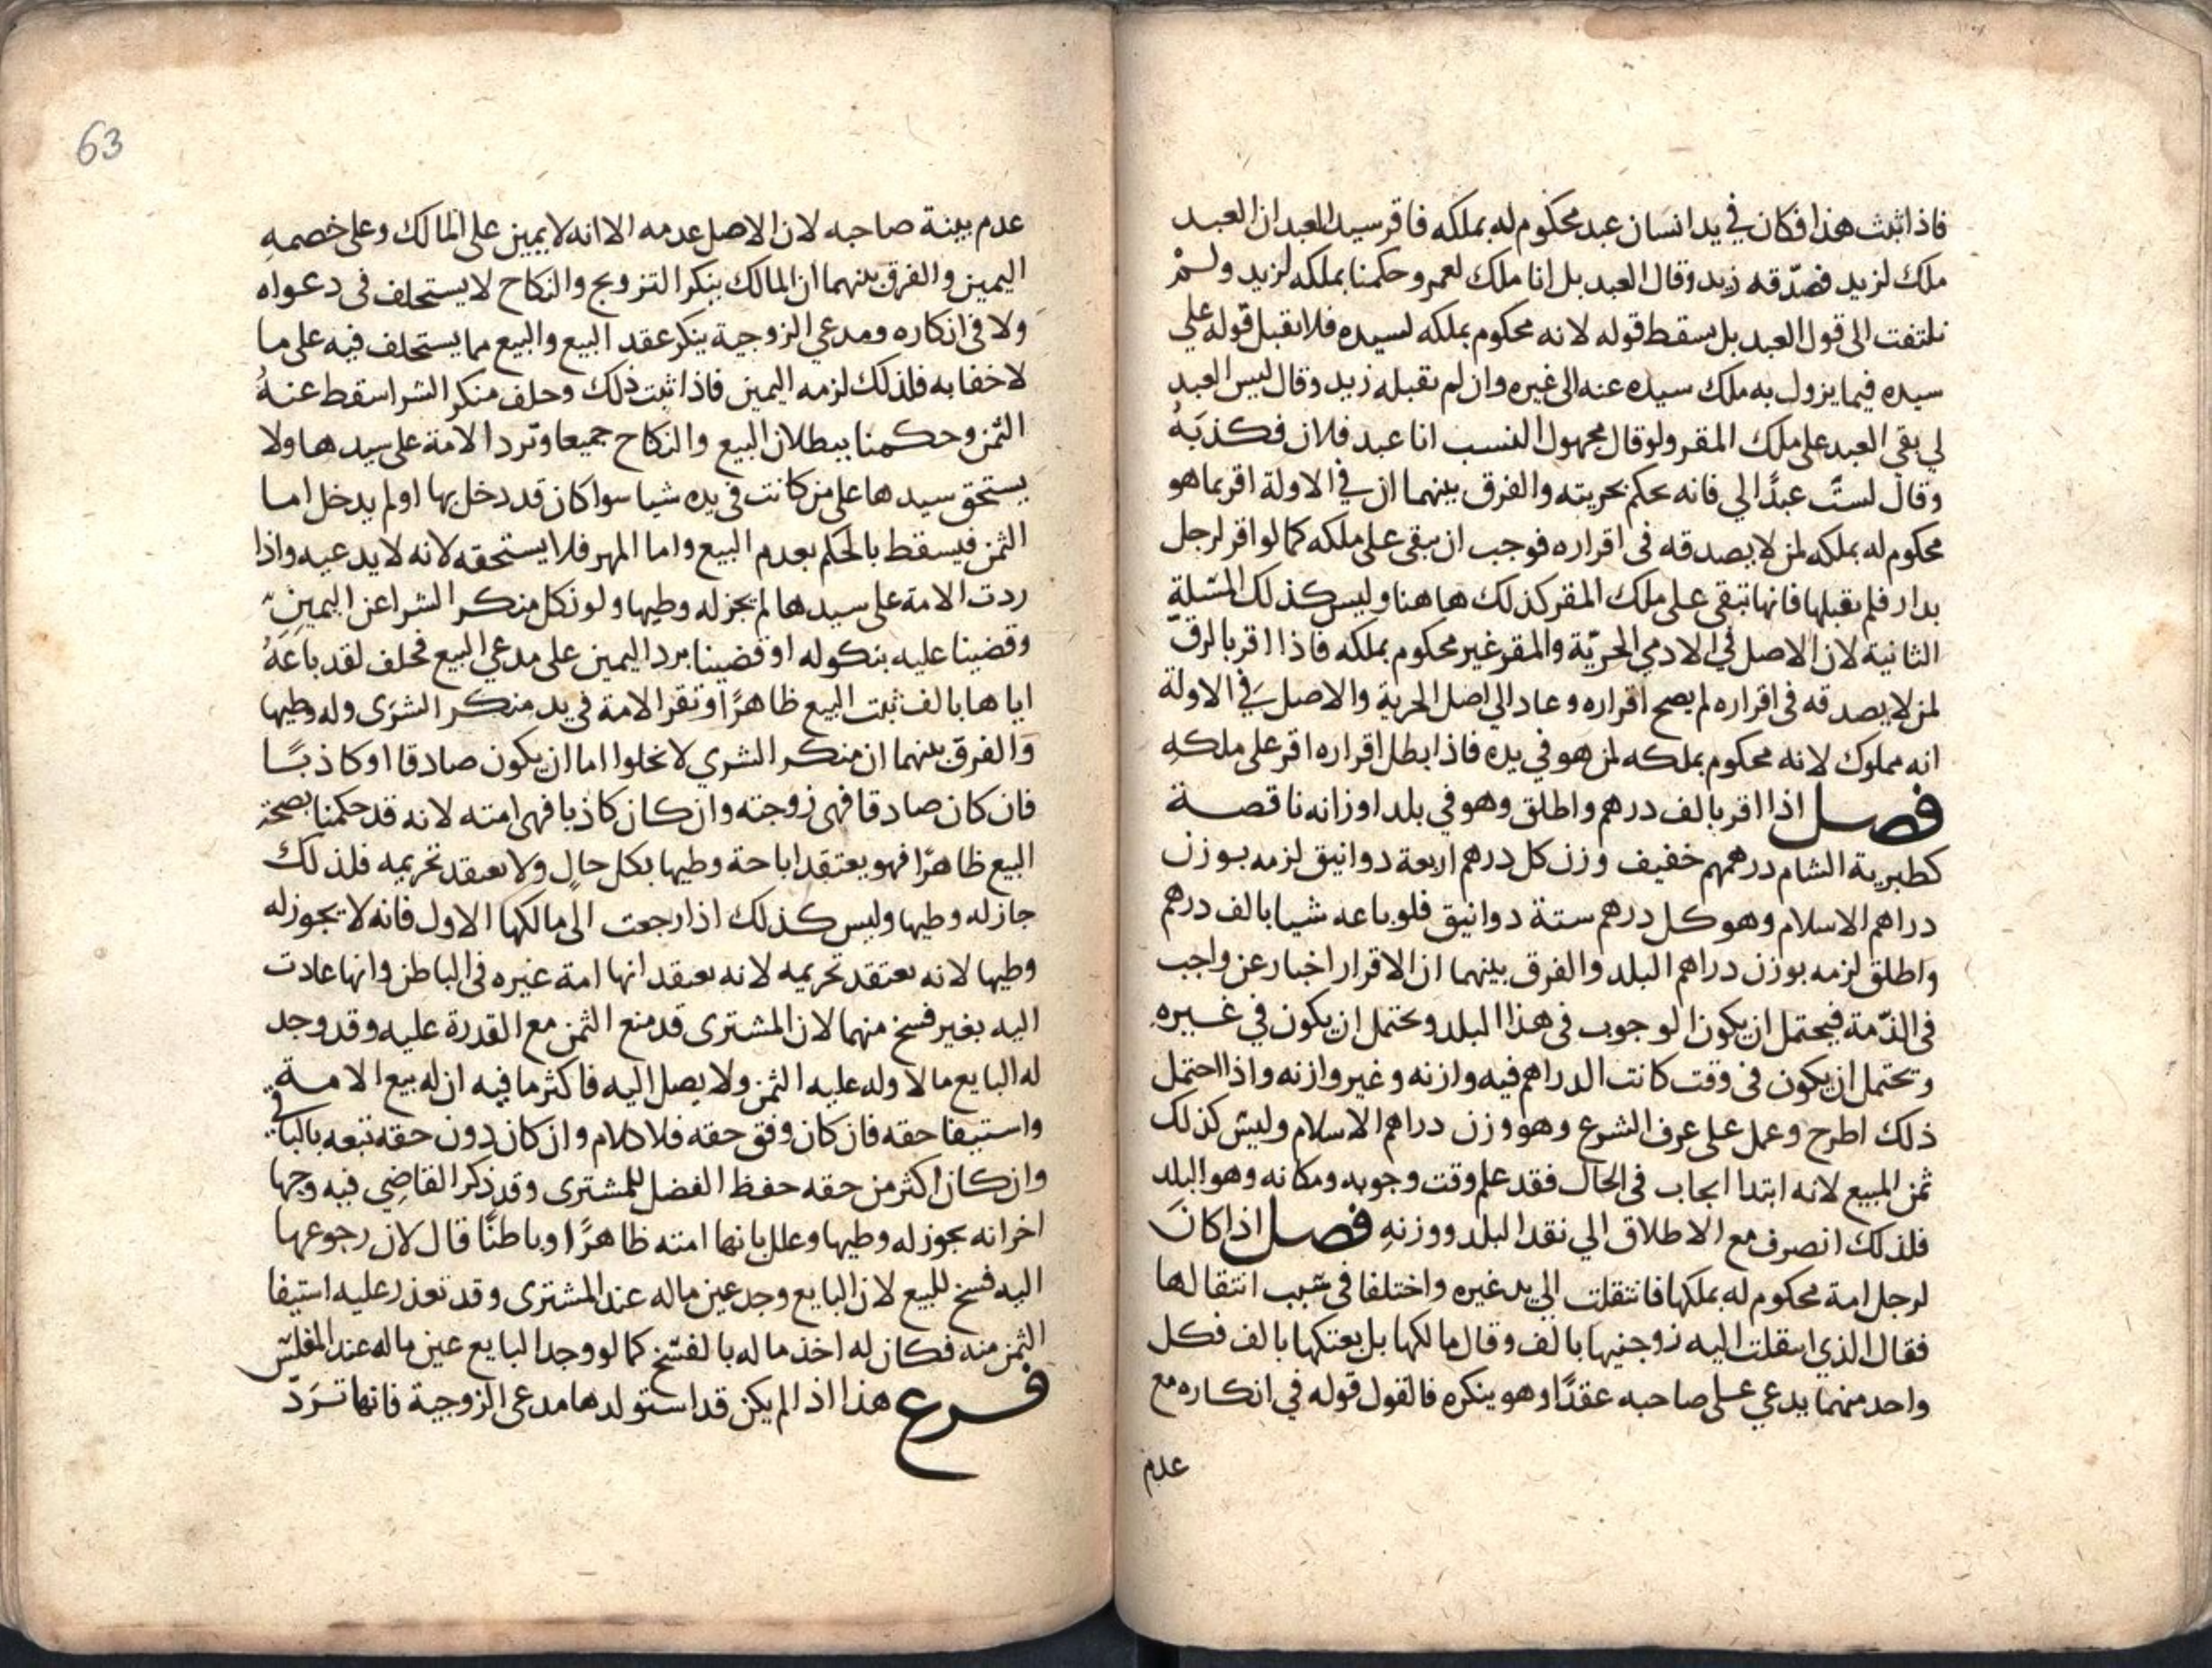 فاذا ثبت هذا فكان في يد انسان عبد محكوم له بملكه فاقر سيد العبد ان العبد
ملك لزيد فصدّقه زيد وقال العبد بل انا ملك لعمرو حكمنا بملكه لزيد ولمْ
نلتفت الى قول العبد بل سقط قوله لانه محكوم بملكه لسيده فلا نقبل قوله علي
سيده فيما يزول به ملك سيده عنه الى غيره وان لم يقبله زيد وقال ليس العبد
لي بقي العبد على ملك المقر ولو قال مجهول النسب انا عبد فلان فكذبَهُ
وقال لستَ عبدًا لي فانه يحكم بحريته والفرق بينهما ان في الاولة اقر بما هو
محكوم له بملكه لمن لا يصدقه في اقراره فوجب ان يبقى على ملكه كما لو اقر لرجل
بدار فلم يقبلها فانها تبقى على ملك المقر كذلك هاهنا وليس كذلك المسّلة
الثانية لان الاصل في الادمي الحريّة والمقر غير محكوم بملكه فاذا اقر بالرقّ
لمن لا يصدقه في اقراره لم يصح اقراره وعاد الي اصل الحرية والاصل في الاولة
انه مملوك لانه محكوم بملكه لمن هو في يده فاذا بطل اقراره اقر على ملكهِ
فصل اذا اقر بالف درهم واطلق وهو في بلد اوزانه ناقصة
كطبرية الشام درهمهم خفيف وزن كل درهم اربعة دوانيق لزمه بوزن
دراهم الاسلام وهو كل درهم ستة دوانيق فلو باعه شيا بالف درهم
واطلق لزمه بوزن دراهم البلد والفرق بينهما ان الاقرار اخبار عن واجب
في الذّمة فيحتمل ان يكون الوجوب في هذا البلد ويحتمل ان يكون في غيرهِ
ويحتمل ان يكون في وقت كانت الدراهم فيه وازنه وغير وازنه واذا احتمل
ذلك اطرح وعمل على عرف الشرع وهو وزن دراهم الاسلام وليس كذلك
ثمن المبيع لانه ابتدا ايجاب في الحال فقد علم وقت وجوبه ومكانه وهو البلد
فلذلك انصرف مع الاطلاق الي نقد البلد ووزنهِ فصل اذا كانَ
لرجل امة محكوم له بملكها فانتقلت الي يد غيره واختلفا في سبب انتقالها
فقال الذي انتقلت اليه زوجنيها بالف وقال مالكها بل بعتكها بالف فكل
واحد منهما يدعي على صاحبه عقدًا وهو ينكره فالقول قوله في انكاره مع
عدم
63
عدم بينة صاحبه لان الاصل عدمه الا انه لا يمين على المالك وعلى خصمهِ
اليمين والفرق بينهما ان المالك ينكر التزويج والنكاح لا يستحلف في دعواه
ولا في انكاره ومدعي الزوجية ينكر عقد البيع والبيع مما يستحلف فيه على ما
لا خفا به فلذلك لزمه اليمين فاذا ثبت ذلك وحلف منكر الشرا سقط عنهُ
الثمن وحكمنا ببطلان البيع والنكاح جميعا وترد الامة على سيدها ولا
يستحق سيدها على من كانت في يده شيا سوا كان قد دخل بها او لم يدخل اما
الثمن فيسقط بالحكم بعدم البيع واما المهر فلا يستحقه لانه لا يدعيه واذا
ردت الامة على سيدها لم يجز له وطيها ولو نكل منكر الشرا عن اليمين
وقضينا عليه بنكوله او قضينا برد اليمين على مدعي البيع فحلف لقد باعَهُ
اياها بالف ثبت البيع ظاهرًا وتقر الامة في يد منكر الشرَى وله وطيها
وَالفرق بينهما ان منكر الشري لا يخلوا اما ان يكون صادقا او كاذبًا
فان كان صادقا فهي زوجته وان كان كاذبا فهي امته لانه قد حكمنا بصحة
البيع ظاهرًا فهو يعتقد اباحة وطيها بكل حالٍ ولا يعتقد تحريمه فلذلك
جاز له وطيها وليس كذلك اذا رجعت الى مالكها الاول فانه لا يجوز له
وطيها لانه يعتقد تحريمه لانه يعتقد انها امة غيره في الباطن وانها عادت
اليه بغير فسخ منهما لان المشترى قد منع الثمن مع القدرة عليه وقد وجد
له البايع مالا وله عليه الثمن ولا يصل اليه فاكثر ما فيه ان له بيع الامة
واستيفا حقه فان كان وفق حقه فلا كلام وان كان دون حقه تبعه بالباقي
وان كان اكثر من حقه حفظ الفضل للمشترى وقد ذكر القاضِي فيه وجها
اخر انه يجوز له وطيها وعلل بانها امته ظاهرًا وباطنًا قال لان رجوعها
اليه فسخ للبيع لان البايع وجد عين ماله عند المشترى وقد تعذر عليه استيفا
الثمن منه فكان له اخذ ماله بالفسخ كما لو وجد البايع عين ماله عند المفلس
فرع هذا اذا لم يكن قد استولدها مدعى الزوجية فانها تُرَدّ